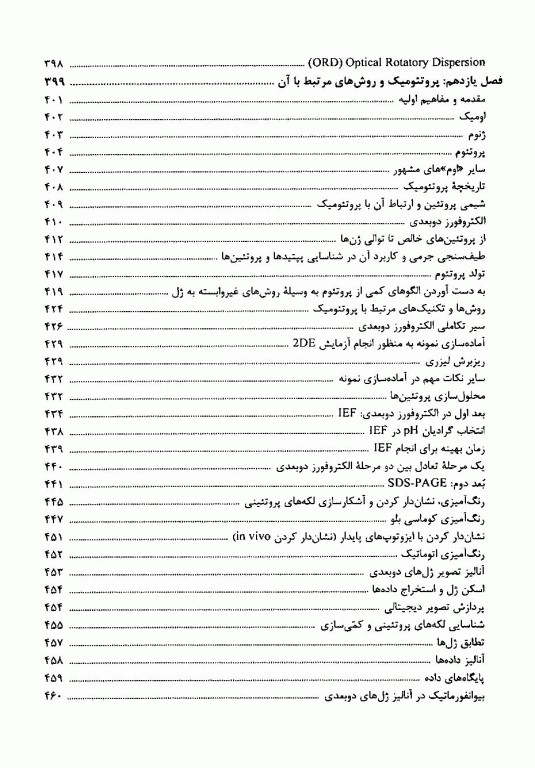 (ORD) Optical Rotatory Dispersion ........ ۳۹۸
فصل یازدهم: پروتئومیک و روش‌های مرتبط با آن ........ ۳۹۹
مقدمه و مفاهیم اولیه ........ ۴۰۱
اومیک ........ ۴۰۲
ژنوم ........ ۴۰۳
پروتئوم ........ ۴۰۴
سایر «اوم»های مشهور ........ ۴۰۷
تاریخچهٔ پروتئومیک ........ ۴۰۸
شیمی پروتئین و ارتباط آن با پروتئومیک ........ ۴۰۹
الکتروفورز دوبعدی ........ ۴۱۰
از پروتئین‌های خالص تا توالی ژن‌ها ........ ۴۱۲
طیف‌سنجی جرمی و کاربرد آن در شناسایی پپتیدها و پروتئین‌ها ........ ۴۱۴
تولد پروتئوم ........ ۴۱۷
به دست آوردن الگوهای کمی از پروتئوم به وسیلهٔ روش‌های غیروابسته به ژل ........ ۴۱۹
روش‌ها و تکنیک‌های مرتبط با پروتئومیک ........ ۴۲۴
سیر تکاملی الکتروفورز دوبعدی ........ ۴۲۶
آماده‌سازی نمونه به منظور انجام آزمایش 2DE ........ ۴۲۹
ریزبرش لیزری ........ ۴۲۹
سایر نکات مهم در آماده‌سازی نمونه ........ ۴۳۲
محلول‌سازی پروتئین‌ها ........ ۴۳۲
بعد اول در الکتروفورز دوبعدی: IEF ........ ۴۳۴
انتخاب گرادیان pH در IEF ........ ۴۳۸
زمان بهینه برای انجام IEF ........ ۴۳۹
یک مرحلهٔ تعادل بین دو مرحلهٔ الکتروفورز دوبعدی ........ ۴۴۰
بُعد دوم: SDS-PAGE ........ ۴۴۱
رنگ‌آمیزی، نشان‌دار کردن و آشکارسازی لکه‌های پروتئینی ........ ۴۴۵
رنگ‌آمیزی کوماسی بلو ........ ۴۴۷
نشان‌دار کردن با ایزوتوپ‌های پایدار (نشان‌دار کردن in vivo) ........ ۴۵۱
رنگ‌آمیزی اتوماتیک ........ ۴۵۲
آنالیز تصویر ژل‌های دوبعدی ........ ۴۵۳
اسکن ژل و استخراج داده‌ها ........ ۴۵۴
پردازش تصویر دیجیتالی ........ ۴۵۴
شناسایی لکه‌های پروتئینی و کمّی‌سازی ........ ۴۵۵
تطابق ژل‌ها ........ ۴۵۷
آنالیز داده‌ها ........ ۴۵۸
پایگاه‌های داده ........ ۴۵۹
بیوانفورماتیک در آنالیز ژل‌های دوبعدی ........ ۴۶۰